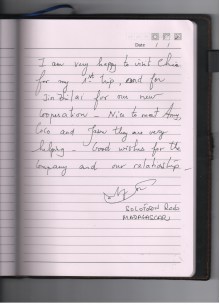 Date: / /
I am very happy to visit China
for my 1st trip, and for
Jindalai for our new
cooperation - Nice to meet Amy,
Coco and they are very
helping - Good wishes for the
company and our relationship -
SOLOFOSON
MADAGASCAR